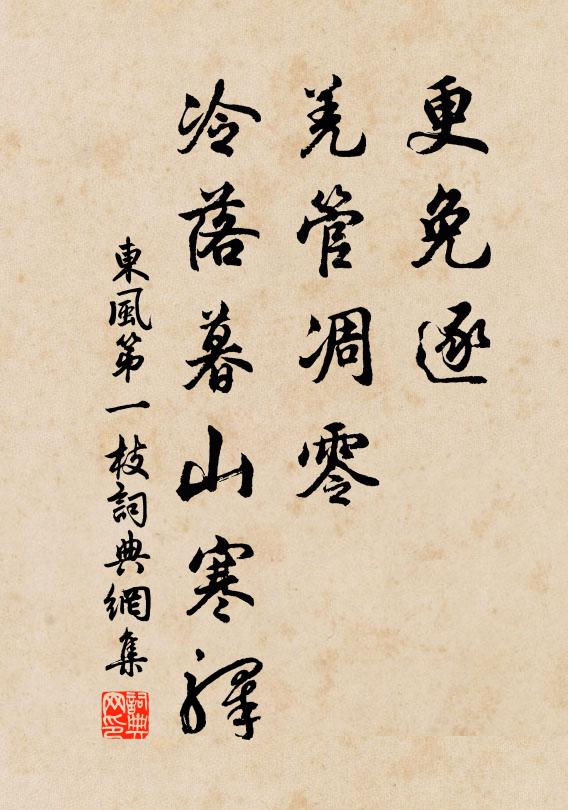 更免逐
羌管凋零
冷落暮山寒驛
東風第一枝詞典網集
詞典网印